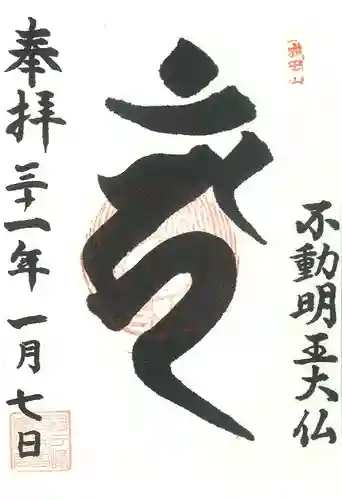 不動明王大仏
奉拝
三十一年一月七日